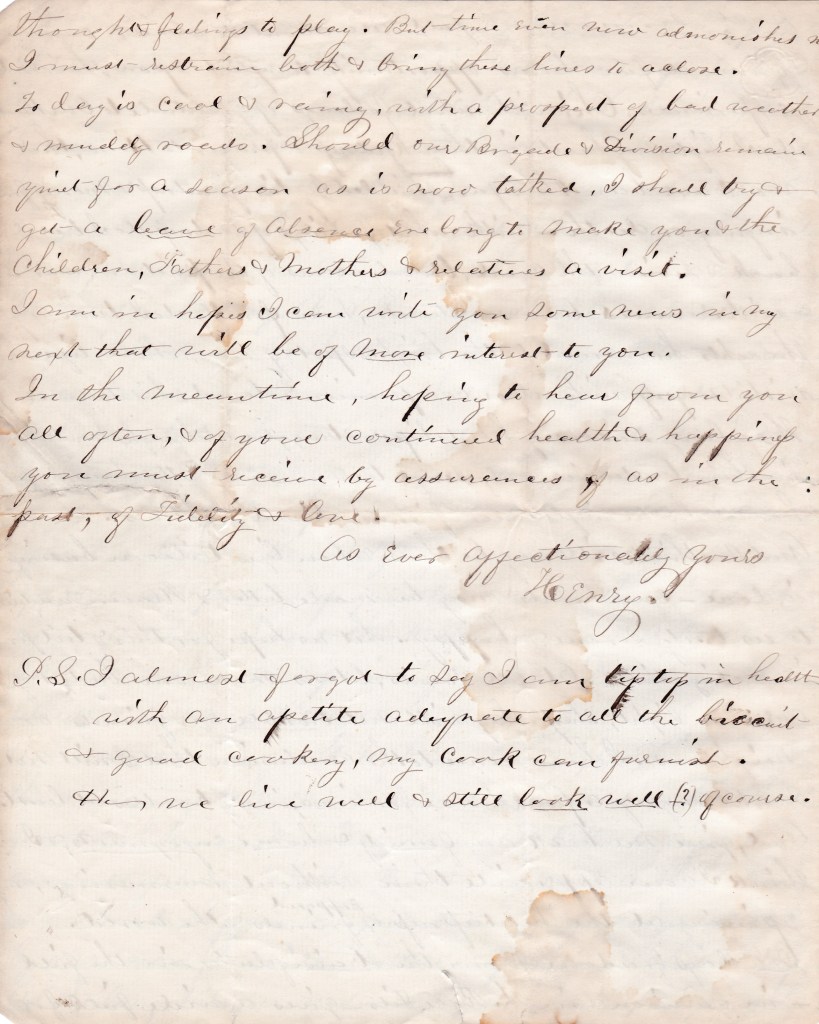 thought & feelings to play. But time even now admonishes
I must restrain both & bring these lines to a close.
To day is cool & rainy, with a prospect of bad weather
& muddy roads. Should our Brigade & Division remain
quiet for a season as is now talked, I shall try &
get a leave of absence ere long to make you & the
Children, Fathers & Mothers & relatives a visit.
I am in hopes I can write you some news in my
next that will be of more interest to you.
In the meantime, hoping to hear from you
all often, & of your continued health & happiness
you must receive by assurances of as in the :
past, of Fidelity & love.
As Ever affectionately yours
Henry.
P.S. I almost forgot to say I am tip top in health
with an apetite adequate to all the biscuit
& good cookery, my Cook can furnish.
we live well & still look well (?) of course.